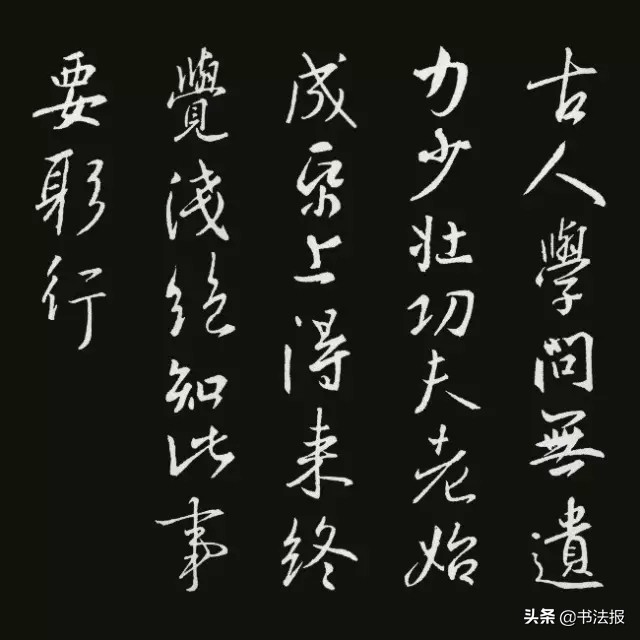 古人學問無遺
力少壮功夫老始
成帋上得来終
覺淺絕知此事
要躬行
头条 @书法报